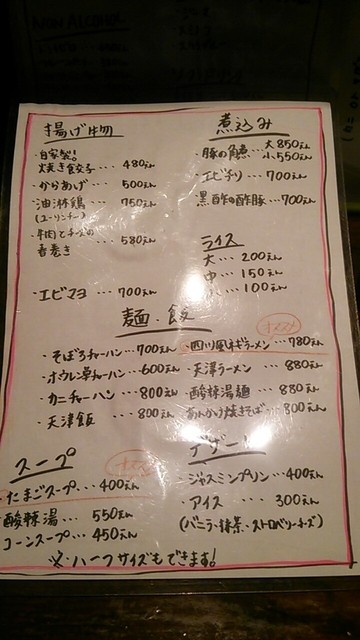 NON ALCOHOL
揚げ物
・自家製!
焼き餃子… 480えん
・からあげ… 500えん
・油淋鶏… 750えん
(ユーリンチー)
・牛肉とチーズの
春巻き… 580えん
・エビマヨ… 700えん
煮込み
・豚の角煮… 大850えん
小550えん
・エビチリ… 700えん
・黒酢の酢豚… 700えん
ライス
大… 200えん
中… 150えん
… 100えん
麺・飯
・そぼろチャーハン… 700えん
・ホウレン草チャーハン… 600えん
・カニチャーハン… 800えん
・天津飯… 800えん
オススメ
・四川風ネギラーメン… 780えん
・天津ラーメン… 880えん
・酸辣湯麺… 880えん
あんかけ焼きそば… 800えん
スープ
オススメ
・たまごスープ… 400えん
酸辣湯… 550えん
コーンスープ… 450えん
デザート
・ジャスミンプリン… 400えん
・アイス… 300えん
(バニラ・抹茶・ストロベリーチーズ)
※ハーフサイズもできます!